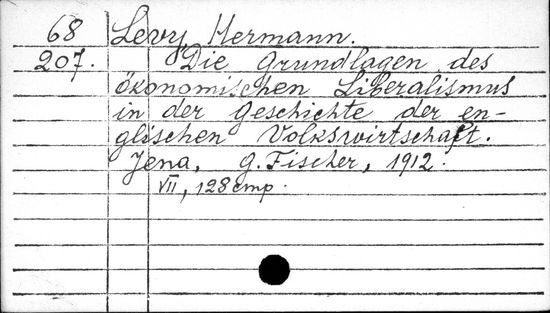 68 Levy, Hermann.
207. Die Grundlagen des
ökonomischen Liberalismus
in der Geschichte der en-
glischen Volkswirtschaft.
Jena, G. Fischer, 1912.
VII, 128 стр.